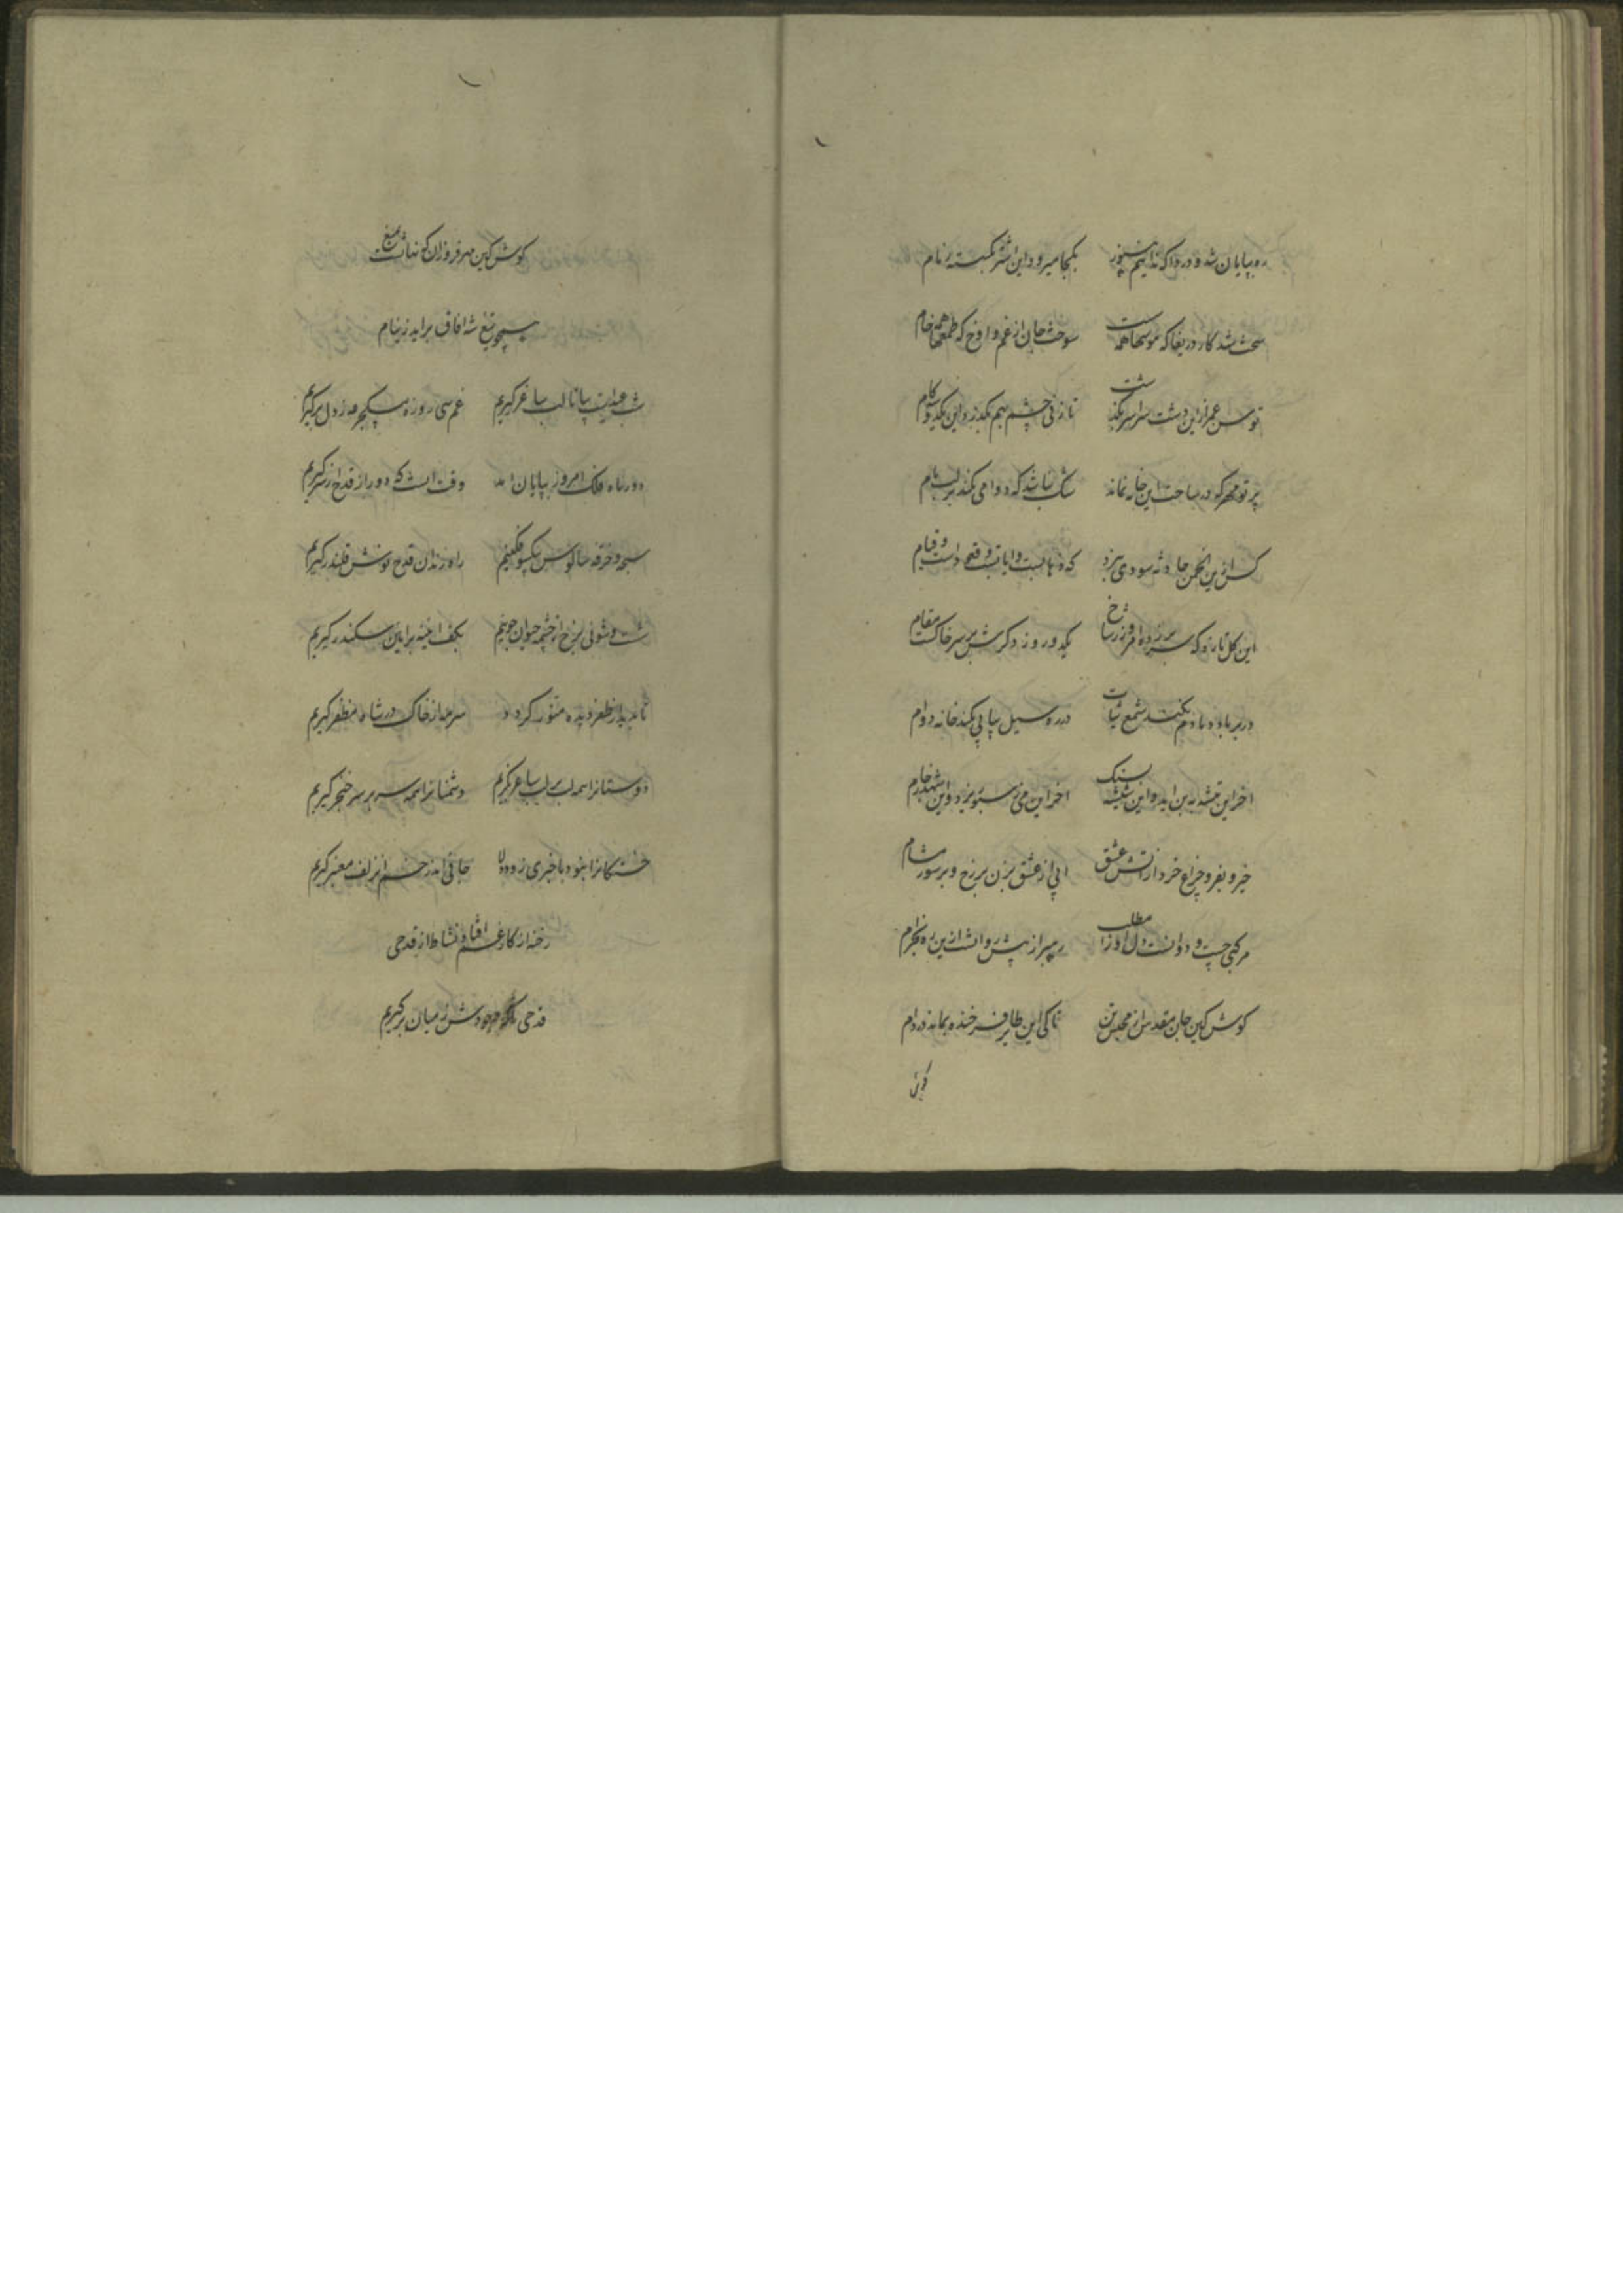 ره بپایان شد و دردا که ندانیم هنوز بکجا میرود این اشتر بکسسته زمام
سخت شد کار دریغا که هوسها همه سوخت جان از غم و اوخ که طمعها همه خام
توسن عمر ازین دشت سراسر بگذشت تا زنی چشم بهم بگذرد این یکدو سه کام
پرتو مهر که در ساحت این خانه نماند شک نباشد که دوامی نکند بر لب بام
کس ازین انجمن حادثه سودی نبرد که
این کل تازه که سر برزده امروز ز شاخ یکدو روز دگرش بر سر خاکست مقام
در بر باد دمادم نکند شمع ثبات در ره سیل پیاپی نکند خانه دوام
اخر این تیشه به بن اید و این شیشه بسنک اخر این می ز سبو ریزد و این شهد ز جام
خیز و بفروز چراغ خرد از آتش عشق ابی از عشق بزن بر رخ و بر سور مشام
مرکبی چست و دوانست دل او را مطلب رهبر از پیش روانست ازین ره بخرام
کوش کاین جان مقدس از محبس تن تا کی این طایر فرخنده بماند در دام
کوش
کوش کاین مهر فروزان که نهانست بمیغ
همچو تیغ شه افاق براید ز نیام
شب عیدست بیا تا لب ساغر گیریم غم سی روزه بیکجرعه ز دل برگیریم
دور ماه فلک امروز بپایان امد وقت انست که دور از قدح از سر گیریم
سبحه و خرقه سالوس بیکسو فکنیم راه رندان قدح نوش قلندر گیریم
شست و شوئی برخ از چشمه حیوان جوییم بکف ائینه برایین سکندر گیریم
تا بدیدار ظفر دیده منور گردد سرمه از خاک در شاه مظفر گیریم
دوستانرا همه لب بر لب ساغر نگریم دشمنانرا همه سر بر سر خنجر گیریم
خستگانرا بنود با خبری زود جانی اندر خم ان زلف معنبر گیریم
رخنه از کار غم افتاد نشاط از قدحی
قدحی وجودش ز میان برگیریم